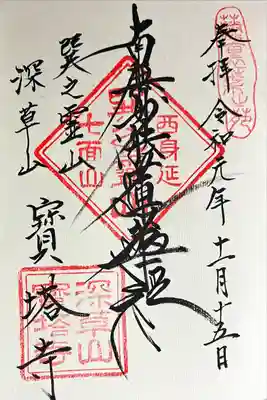 奉拝 令和元年十一月十五日
南無妙法蓮華経
西身延
七面山
巽之霊山
深草山
寳塔寺
深草山
寳塔寺